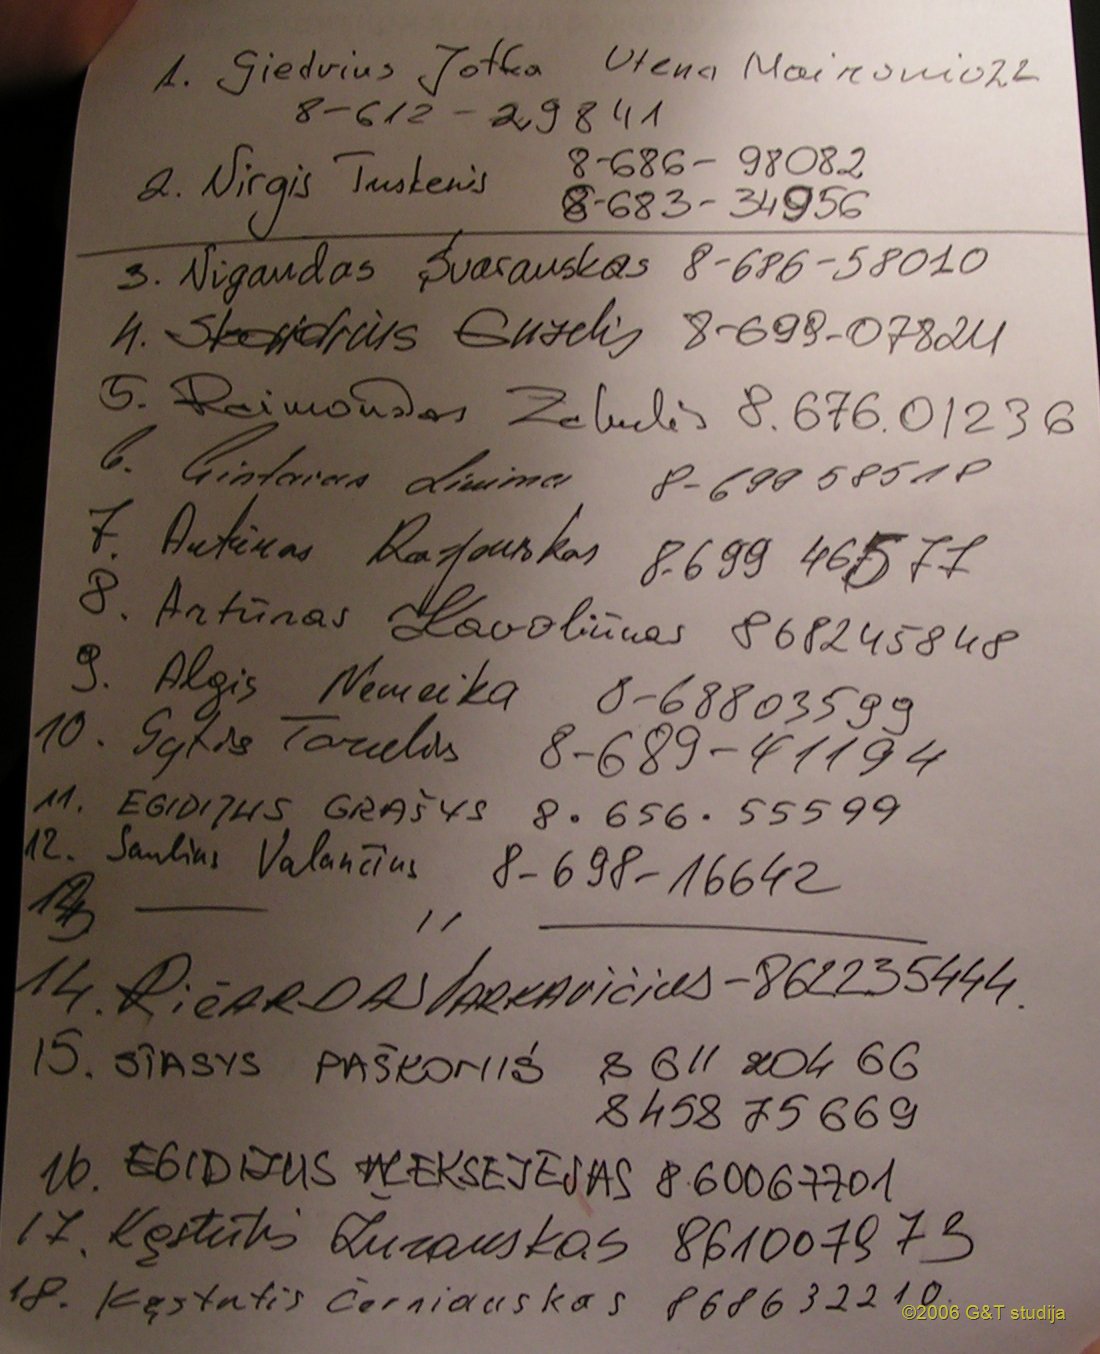 1. Giedrius Jotka Utena Maironio 22
8-612-29841
2. Nirgis Tuskenis 8-686-98082
8-683-34956
3. Nigaudas Švarauskas 8-686-58010
4. 8-698-07824
5. Raimondas Zabulis 8.676.01236
6. Gintaras 8-699 58518
7. Artūras Razauskas 8.699 46577
8. Artūras Kavoliūnas 868245848
9. Algis Nemeika 8-68803599
10. Gytis Tarulis 8-689-41194
11. EGIDIJUS GRAŠYS 8.656.55599
12. Saulius Valančius 8-698-16642
13 — '' —
14. RičARDAS VARKAvičius-862235444.
15. STASYS PAŠKONIS 8 611 204 66
8458 75669
16. EGIDIJUS ALEKSEJEJAS 8.60067701
17. Kęstutis Zurauskas 861007973
18. Kęstutis Černiauskas 868632210
©2006 G&T studija